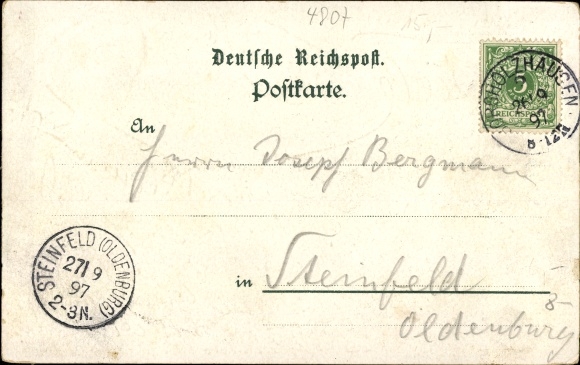 4807 15,-
Deutsche Reichspost.
Postkarte.
5
REICHSPOST
26/9
97
8-12N
An
Herrn Josef Bergmann
STEINFELD (OLDENBURG)
27/9
97
2-3N.
in Steinfeld
Oldenburg